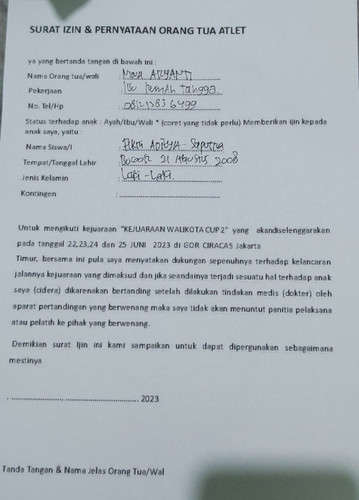 SURAT IZIN & PERNYATAAN ORANG TUA ATLET
ya yang bertanda tangan di bawah ini :
Nama Orang tua/wali :
Pekerjaan : Ibu Rumah Tangga
No. Tel/Hp :
Status terhadap anak : Ayah/Ibu/Wali * (coret yang tidak perlu) Memberikan ijin kepada
anak saya, yaitu :
Nama Siswa/I : Fikri Aditya Saputra
Tempat/Tanggal Lahir : 21 Agustus 2008
Jenis Kelamin : Laki-Laki
Kontingen :
Untuk mengikuti kejuaraan "KEJUARAAN WALIKOTA CUP 2" yang akandiselenggarakan
pada tanggal 22,23,24 dan 25 JUNI 2023 di GOR CIRACAS Jakarta
Timur, bersama ini pula saya menyatakan dukungan sepenuhnya terhadap kelancaran
jalannya kejuaraan yang dimaksud dan jika seandainya terjadi sesuatu hal terhadap anak
saya (cidera) dikarenakan bertanding setelah dilakukan tindakan medis (dokter) oleh
aparat pertandingan yang berwenang maka saya tidak akan menuntut panitia pelaksana
atau pelatih ke pihak yang berwenang.
Demikian surat Ijin ini kami sampaikan untuk dapat dipergunakan sebagaimana
mestinya
2023
Tanda Tangan & Nama Jelas Orang Tua/Wal